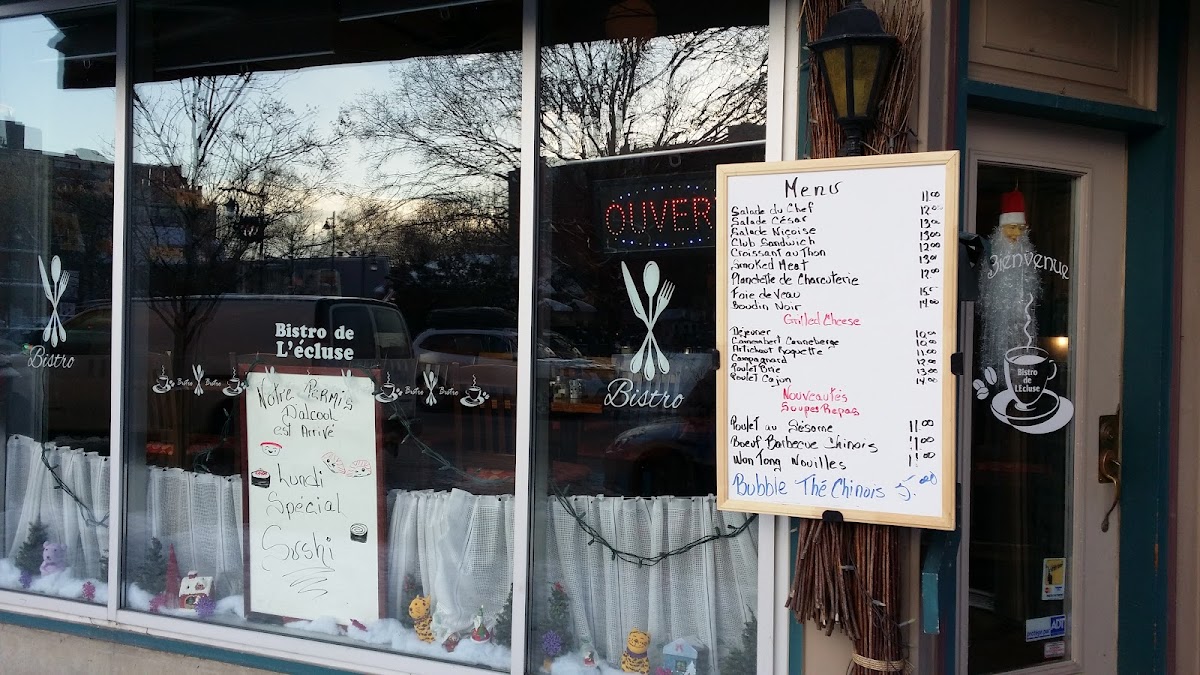 Bistro
Bistro de
L'écluse
Bistro
Bistro
Bistro
Notre Permis
D'alcool
est Arrivé
Lundi
Spécial
Sushi
OUVER
Bistro
Menu
Salade du Chef 11.00
Salade César 12.00
Salade Niçoise 13.00
Club Sandwich 13.00
Croissant au Thon 12.00
Smoked Meat 13.00
Planchette de Charcuterie 12.00
Foie de Veau
Boudin Noir 14.00
Grilled Cheese
Déjeuner 10.00
Camembert Canneberge 10.00
Artichaut Roquette 11.00
Campagnard 12.00
Poulet Brie 13.00
Poulet Cajun 14.00
Nouveautés
Soupes Repas
Poulet au Sésame 11.00
Boeuf Barbecue Chinois 11.00
Won Tong Nouilles
Bubble Thé Chinois 5.00
Bienvenue
Bistro
de
L'Ecluse
ADT